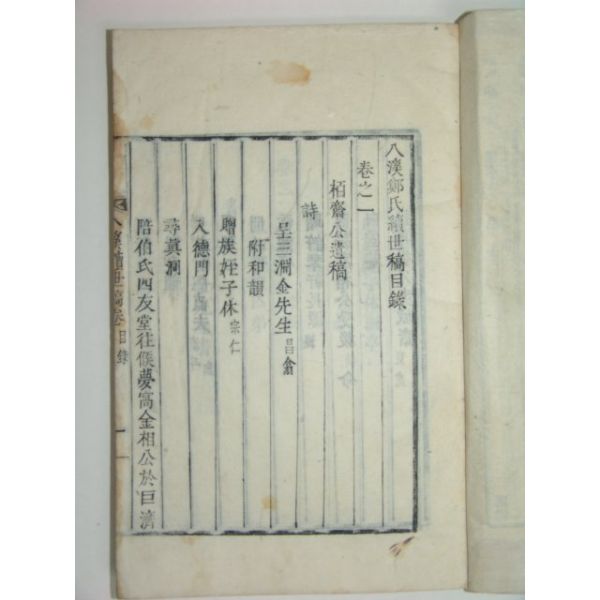 八溪鄭氏續世稿目錄
卷之一
栢齋公遺稿
詩
呈三淵金先生昌翕
附和韻
贈族姪子休宗仁
入德門
尋眞洞
陪伯氏四友堂往候夢窩金相公於巨濟
八溪續世稿卷 目錄 一